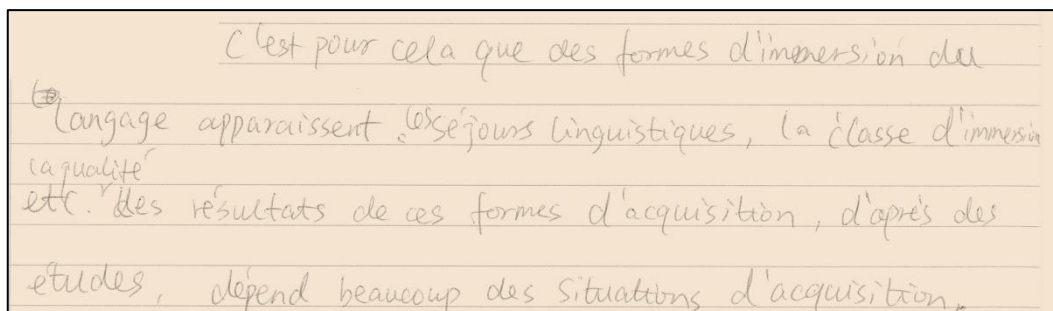 C'est pour cela que des formes d'immersion du
langage apparaissent : les séjours linguistiques, la classe d'immersion
etc. la qualité des résultats de ces formes d'acquisition, d'après des
études, dépend beaucoup des situations d'acquisition.